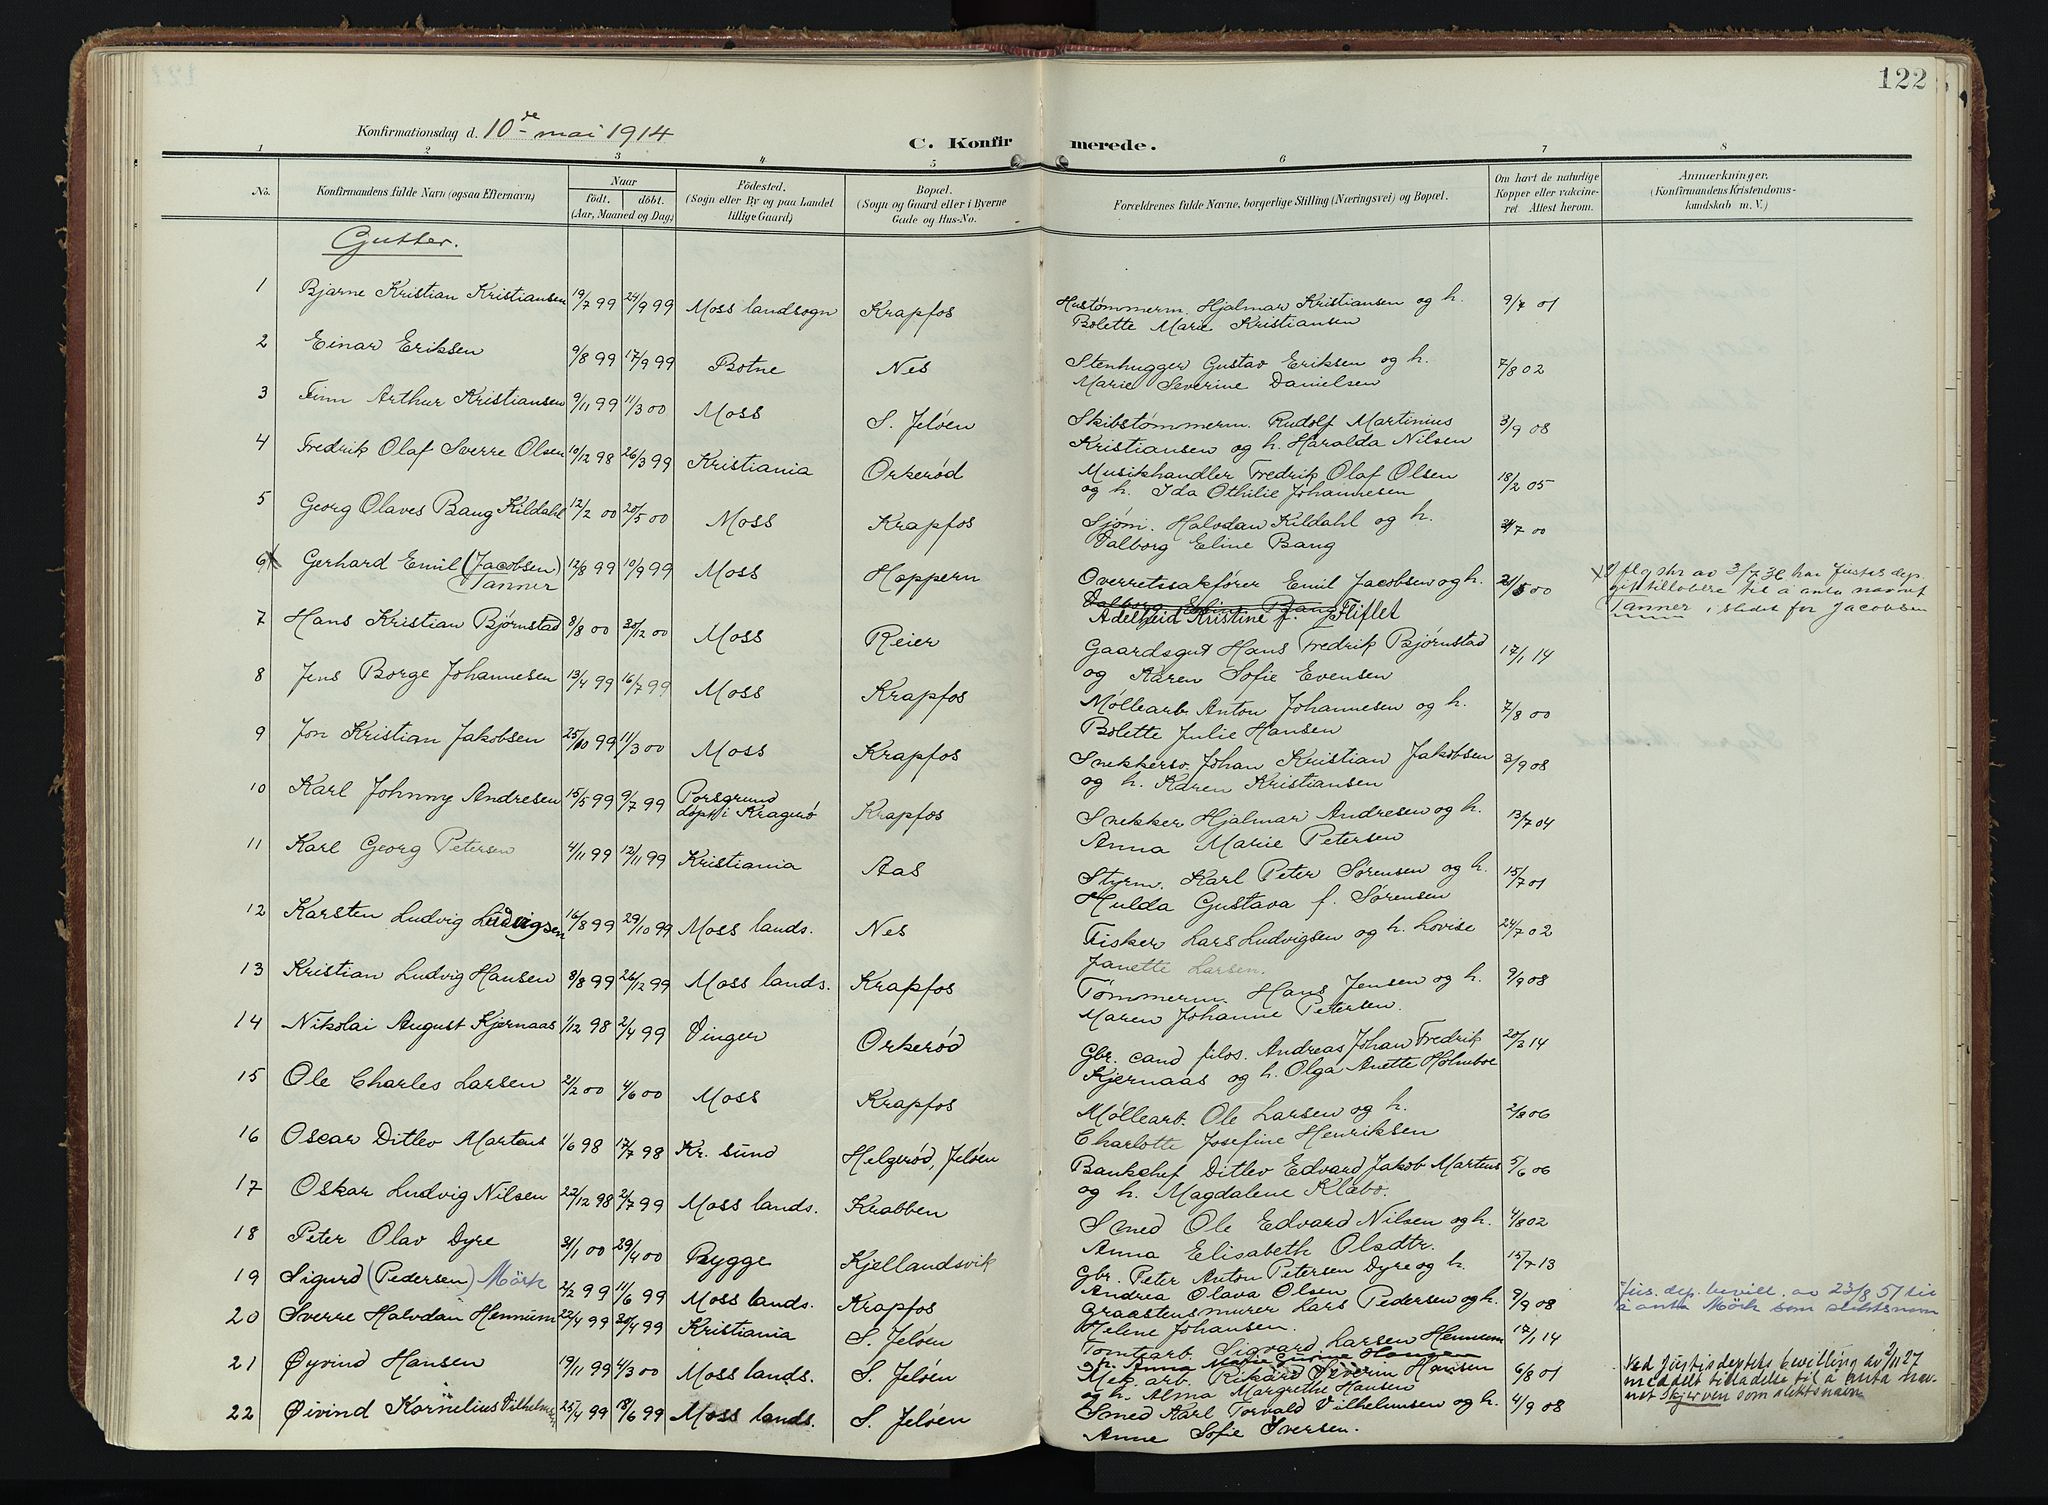 122
Konfirmationsdag d. 10de mai 1914
C. Konfirmerede.
1 2 3 4 5 6 7 8
No. Konfirmandens fulde Navn (ogsaa Efternavn) Naar født. døbt. (Aar, Maaned og Dag) Fødested. (Sogn eller By og paa Landet tillige Gaard) Bopæl. (Sogn og Gaard eller i Byerne Gade og Hus-No. Forældrenes fulde Navne, borgerlige Stilling (Næringsvei) og Bopæl. Om havt de naturlige Kopper eller vakcineret Attest herom. Anmerkninger. (Konfirmandens Kristendomskundskab m. V.)
Gutter.
1 Bjarne Kristian Kristiansen 19/7 99 24/9 99 Moss landsogn Krapfos Hustømmerm. Hjalmar Kristiansen og h. 9/7 01
Bolette Marie Kristiansen
2 Einar Eriksen 9/8 99 17/9 99 Botne Nes Stenhugger Gustav Eriksen og h. 7/8 02
Marie Severine Danielsen
3 Finn Arthur Kristiansen 9/11 99 11/3 00 Moss S. Jeløen Skibstømmerm. Rudolf Martinius 3/9 08
Kristiansen og h. Haralda Nilsen
4 Fredrik Olaf Sverre Olsen 10/12 98 26/3 99 Kristiania Orkerød Musikhandler Fredrik Olaf Olsen 18/2 05
og h. Ida Othilie Johannesen
5 Georg Olaves Bang Kildahl 12/2 00 20/5 00 Moss Krapfos Sjøm. Halvdan Kildahl og h. 3/7 00
Valborg Eline Bang
6 Gerhard Emil (Jacobsen) 12/8 99 10/9 99 Moss Hoppern Overretssakfører Emil Jacobsen og h. 21/5 00 X I flg skr av 3/7 36 har Justisdep.
Tanner Valborg Eline Bang Fliflet gitt tillatelse til å anta navnet
Adelheid Kristine f. Tanner i stedet for Jacobsen
7 Hans Kristian Bjørnstad 8/8 00 30/12 00 Moss Reier Gaardsgut Hans Fredrik Bjørnstad 17/1 14
og Karen Sofie Evensen
8 Jens Borge Johannesen 13/4 99 16/7 99 Moss Krapfos Møllearb. Anton Johannesen og h. 7/8 00
Bolette Julie Hansen
9 Jon Kristian Jakobsen 25/10 99 11/3 00 Moss Krapfos Snekkersv. Johan Kristian Jakobsen 3/9 08
og h. Karen Kristiansen
10 Karl Johnny Andresen 15/5 99 9/7 99 Porsgrund Krapfos Snekker Hjalmar Andresen og h. 13/7 04
døpt i Kragerø Anna Marie Petersen
11 Karl Georg Petersen 4/11 99 12/11 99 Kristiania Aas Styrm. Karl Peter Sørensen og h. 15/7 01
Hulda Gustava f. Sørensen
12 Karsten Ludvig Ludvigsen 16/8 99 29/10 99 Moss lands. Nes Fisker Lars Ludvigsen og h. Lovise 24/7 02
Janette Larsen.
13 Kristian Ludvig Hansen 8/8 99 26/12 99 Moss lands. Krapfos Tømmerm. Hans Jensen og h. 9/9 08
Maren Johanne Petersen.
14 Nikolai August Kjernaas 1/12 98 2/4 99 Vinger Orkerød Gbr. cand filos. Andreas Johan Fredrik 20/2 14
Kjernaas og h. Olga Anette Holmboe
15 Ole Charles Larsen 2/2 00 4/6 00 Moss Krapfos Møllearb. Ole Larsen og h. 2/8 06
Charlotte Josefine Henriksen
16 Oscar Ditlev Martens 1/6 98 17/7 98 Kr. sund Helgerød, Jeløen Bankchef Ditlev Edvard Jakob Martens 5/6 06
og h. Magdalene Klæbo.
17 Oskar Ludvig Nilsen 22/12 98 2/7 99 Moss lands. Krabben Smed Ole Edvard Nilsen og h. 4/8 02
Anna Elisabeth Olsdtr.
18 Peter Olav Dyre 31/1 00 29/4 00 Rygge Kjellandsvik Gbr. Peter Anton Petersen Dyre og h. 15/7 13
Andrea Olava Olsen
19 Sigurd (Pedersen) Mörk 2/2 99 11/6 99 Moss lands. Krapfos Graastensmurer Lars Pedersen og h. 9/9 08 Jus. dep. bevill. av 23/8 51 til
Helene Johansen. å anta Mörk som slektsnavn
20 Sverre Halvdan Hennum 22/4 99 30/4 99 Kristiania S. Jeløen Tomtearb. Sigvard Larsen Hennum 17/1 14
og h. Anna Marie Hansen
21 Øyvind Hansen 19/11 99 4/3 00 Moss lands. S. Jeløen Mek. arb. Rikard Severin Hansen 6/8 01 Ved Justisdeptets bevilling av 2/11 27
og h. Alma Margrethe Hansen meddelt tilladelse til å anta navnet Skjerven som slektsnavn
22 Øivind Kornelius Vilhelmsen 25/4 99 18/6 99 Moss lands. S. Jeløen Smed Karl Torvald Vilhelmsen og h. 4/9 08
Anne Sofie Iversen.